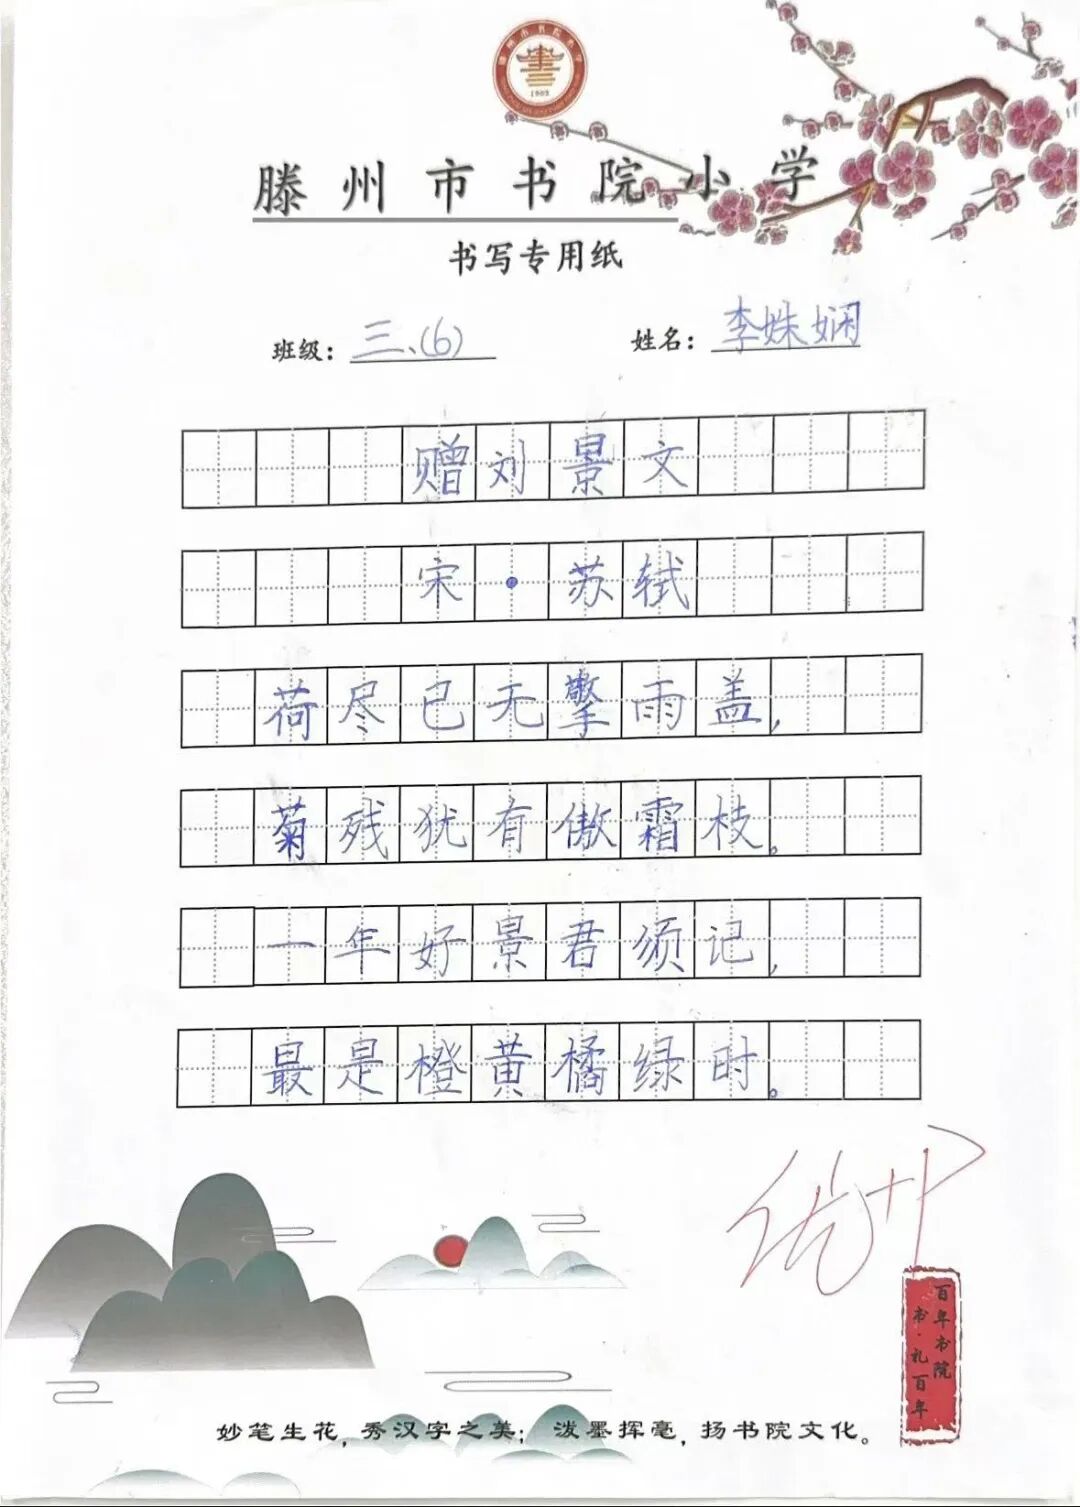 1902
滕州市书院小学
书写专用纸
班级：三、(6) 姓名：李姝娴
赠刘景文
宋·苏轼
荷尽已无擎雨盖，
菊残犹有傲霜枝。
一年好景君须记，
最是橙黄橘绿时。
优++
百年书院
书·礼百年
妙笔生花，秀汉字之美；泼墨挥毫，扬书院文化。